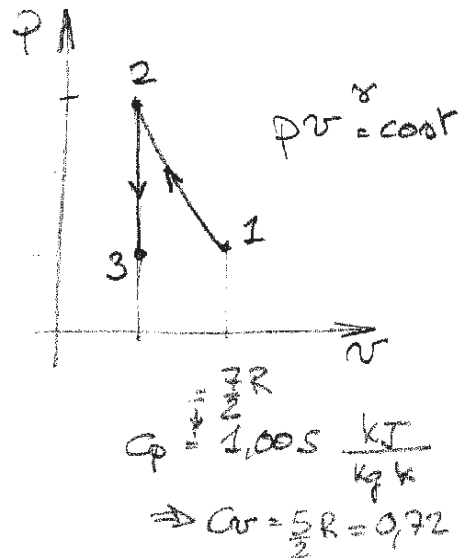 p
2
pv^γ = cost
1
3
v
= 7/2 R
Cp = 1,005 kJ/kg K
⇒ Cv = 5/2 R = 0,72